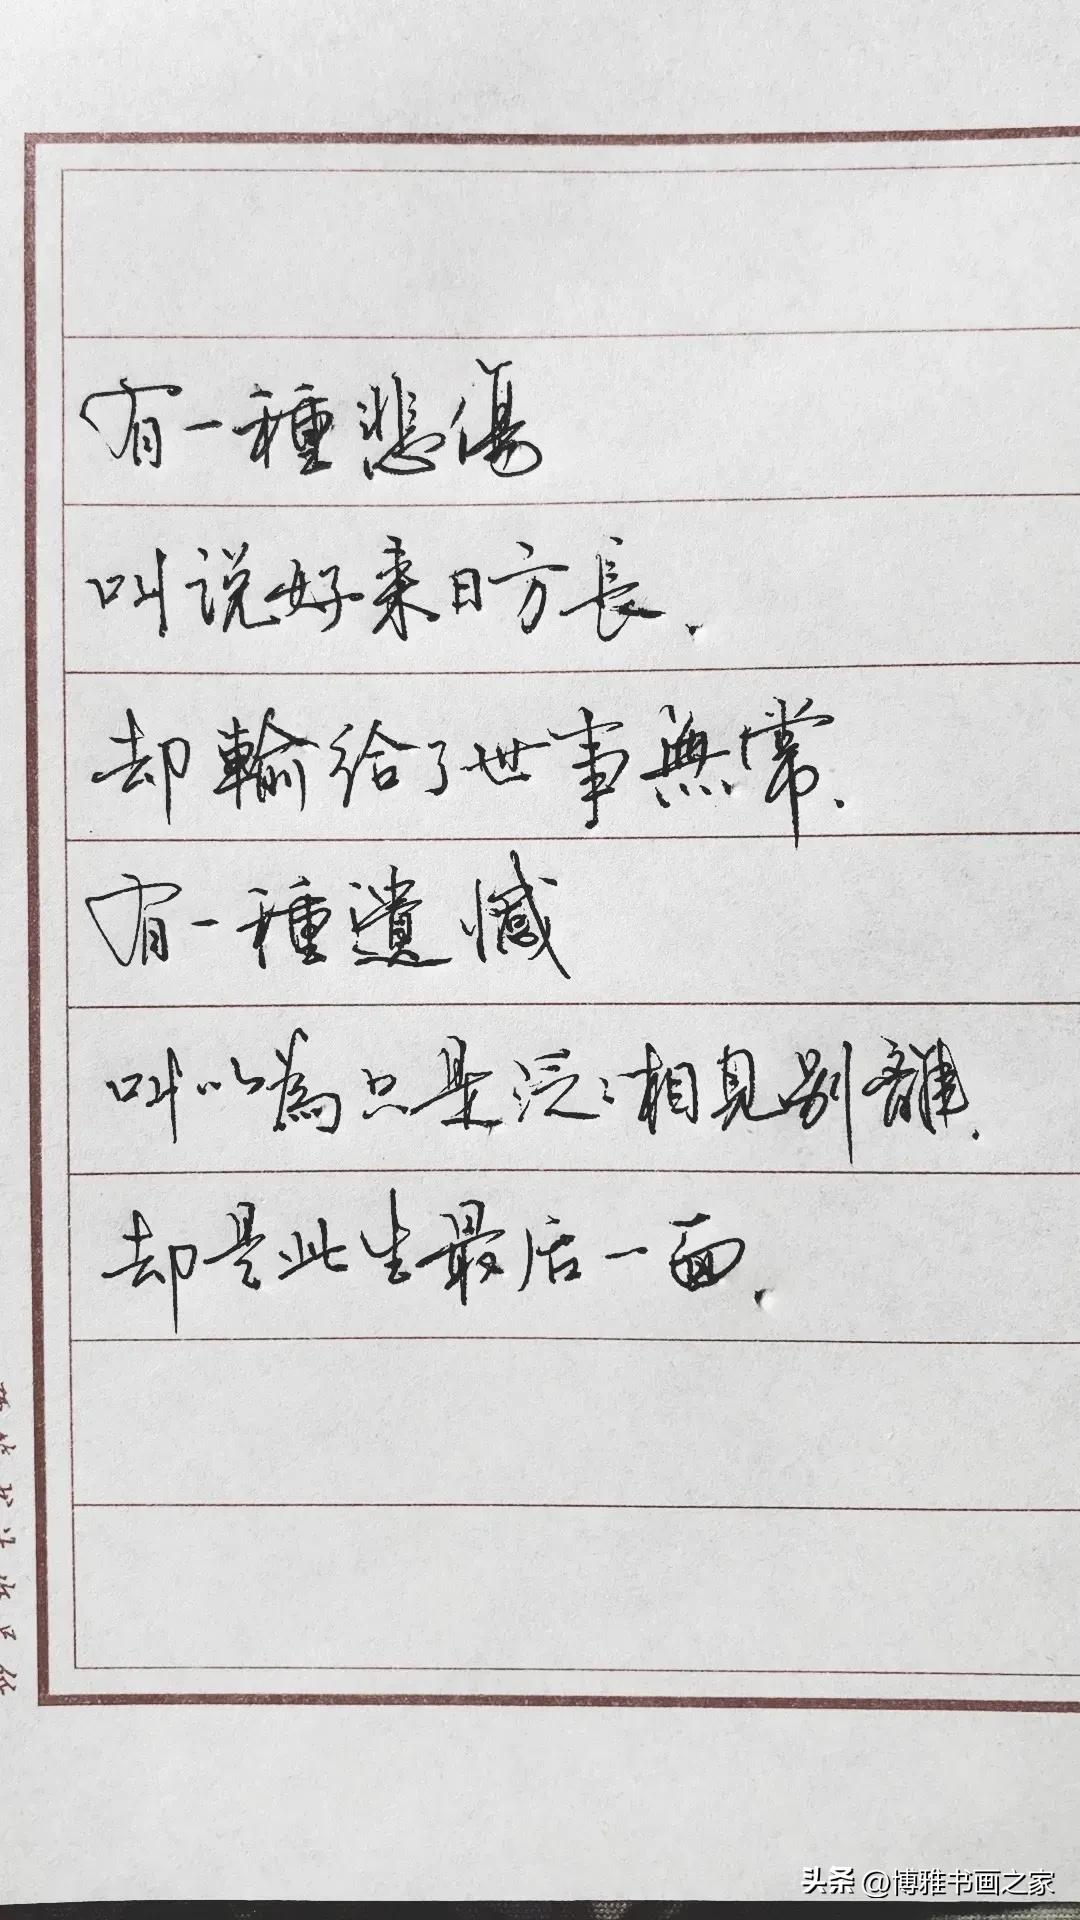 有一種悲傷
叫说好来日方長.
却輸給了世事無常.
有一種遺憾
叫以為只是泛泛相見别離.
却是此生最后一面.
头条 @博雅书画之家